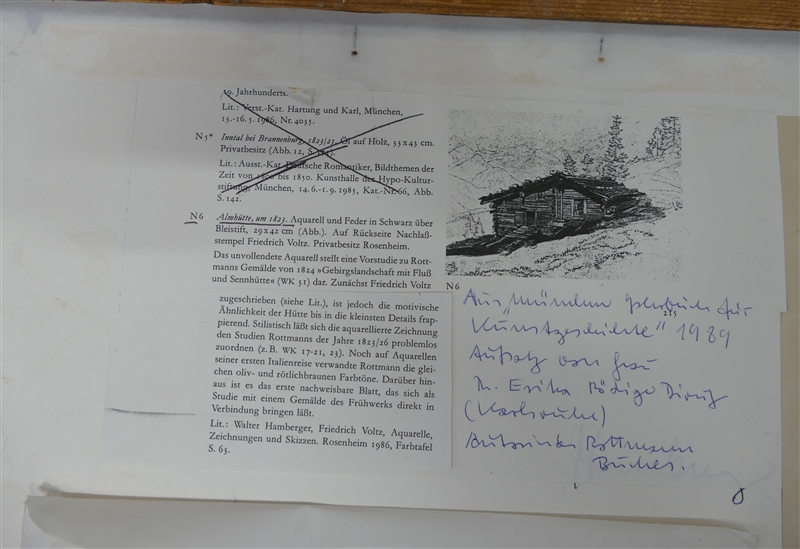 19. Jahrhunderts.
Lit.: Verst.-Kat. Hartung und Karl, München,
13.-16. 5. 1986, Nr. 4055.
N 5* Inntal bei Brannenburg, 1823/25. Öl auf Holz, 33 x 43 cm.
Privatbesitz (Abb. 12, S.
Lit.: Ausst.-Kat. Deutsche Romantiker, Bildthemen der
Zeit von 1800 bis 1850. Kunsthalle der Hypo-Kultur-
stiftung, München, 14. 6.-1. 9. 1985, Kat.-Nr. 66, Abb.
S. 142.
N 6 Almhütte, um 1823. Aquarell und Feder in Schwarz über
Bleistift, 29 x 42 cm (Abb.). Auf Rückseite Nachlaß-
stempel Friedrich Voltz. Privatbesitz Rosenheim.
Das unvollendete Aquarell stellt eine Vorstudie zu Rott-
manns Gemälde von 1824 »Gebirgslandschaft mit Fluß
und Sennhütte« (WK 31) dar. Zunächst Friedrich Voltz
zugeschrieben (siehe Lit.), ist jedoch die motivische
Ähnlichkeit der Hütte bis in die kleinsten Details frap-
pierend. Stilistisch läßt sich die aquarellierte Zeichnung
den Studien Rottmanns der Jahre 1823/26 problemlos
zuordnen (z. B. WK 17-21, 23). Noch auf Aquarellen
seiner ersten Italienreise verwandte Rottmann die glei-
chen oliv- und rötlichbraunen Farbtöne. Darüber hin-
aus ist es das erste nachweisbare Blatt, das sich als
Studie mit einem Gemälde des Frühwerks direkt in
Verbindung bringen läßt.
Lit.: Walter Hamberger, Friedrich Voltz, Aquarelle,
Zeichnungen und Skizzen. Rosenheim 1986, Farbtafel
S. 63.
N 6
Aus "München für
Kunstgeschichte" 1989
Aufsatz von Frau
Dr. Erika Rödiger-Diruf
(Karlsruhe)
Rottmann
Buches.